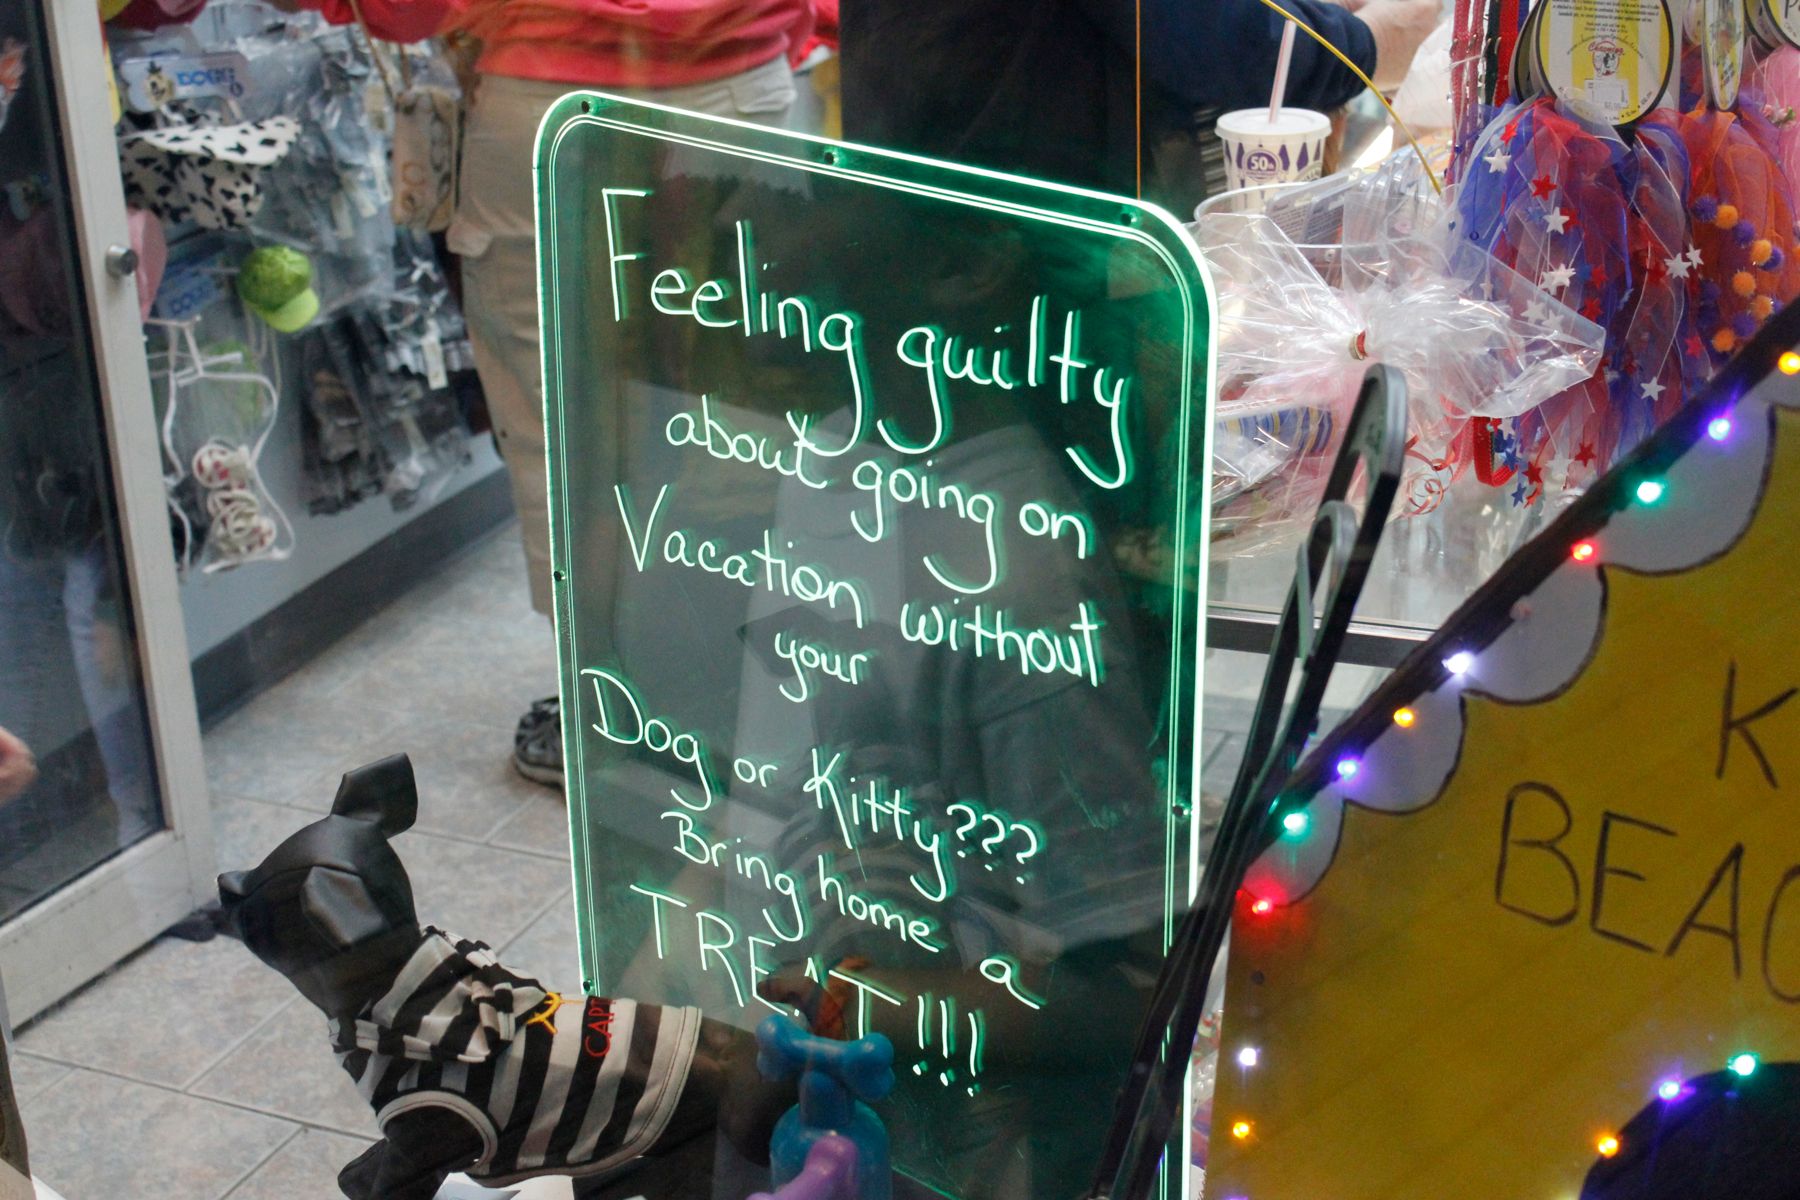 Feeling guilty
about going on
Vacation without
your
Dog or Kitty???
Bring home a
TREAT!!!
DOGG
50th
K
BEAC
CAPT